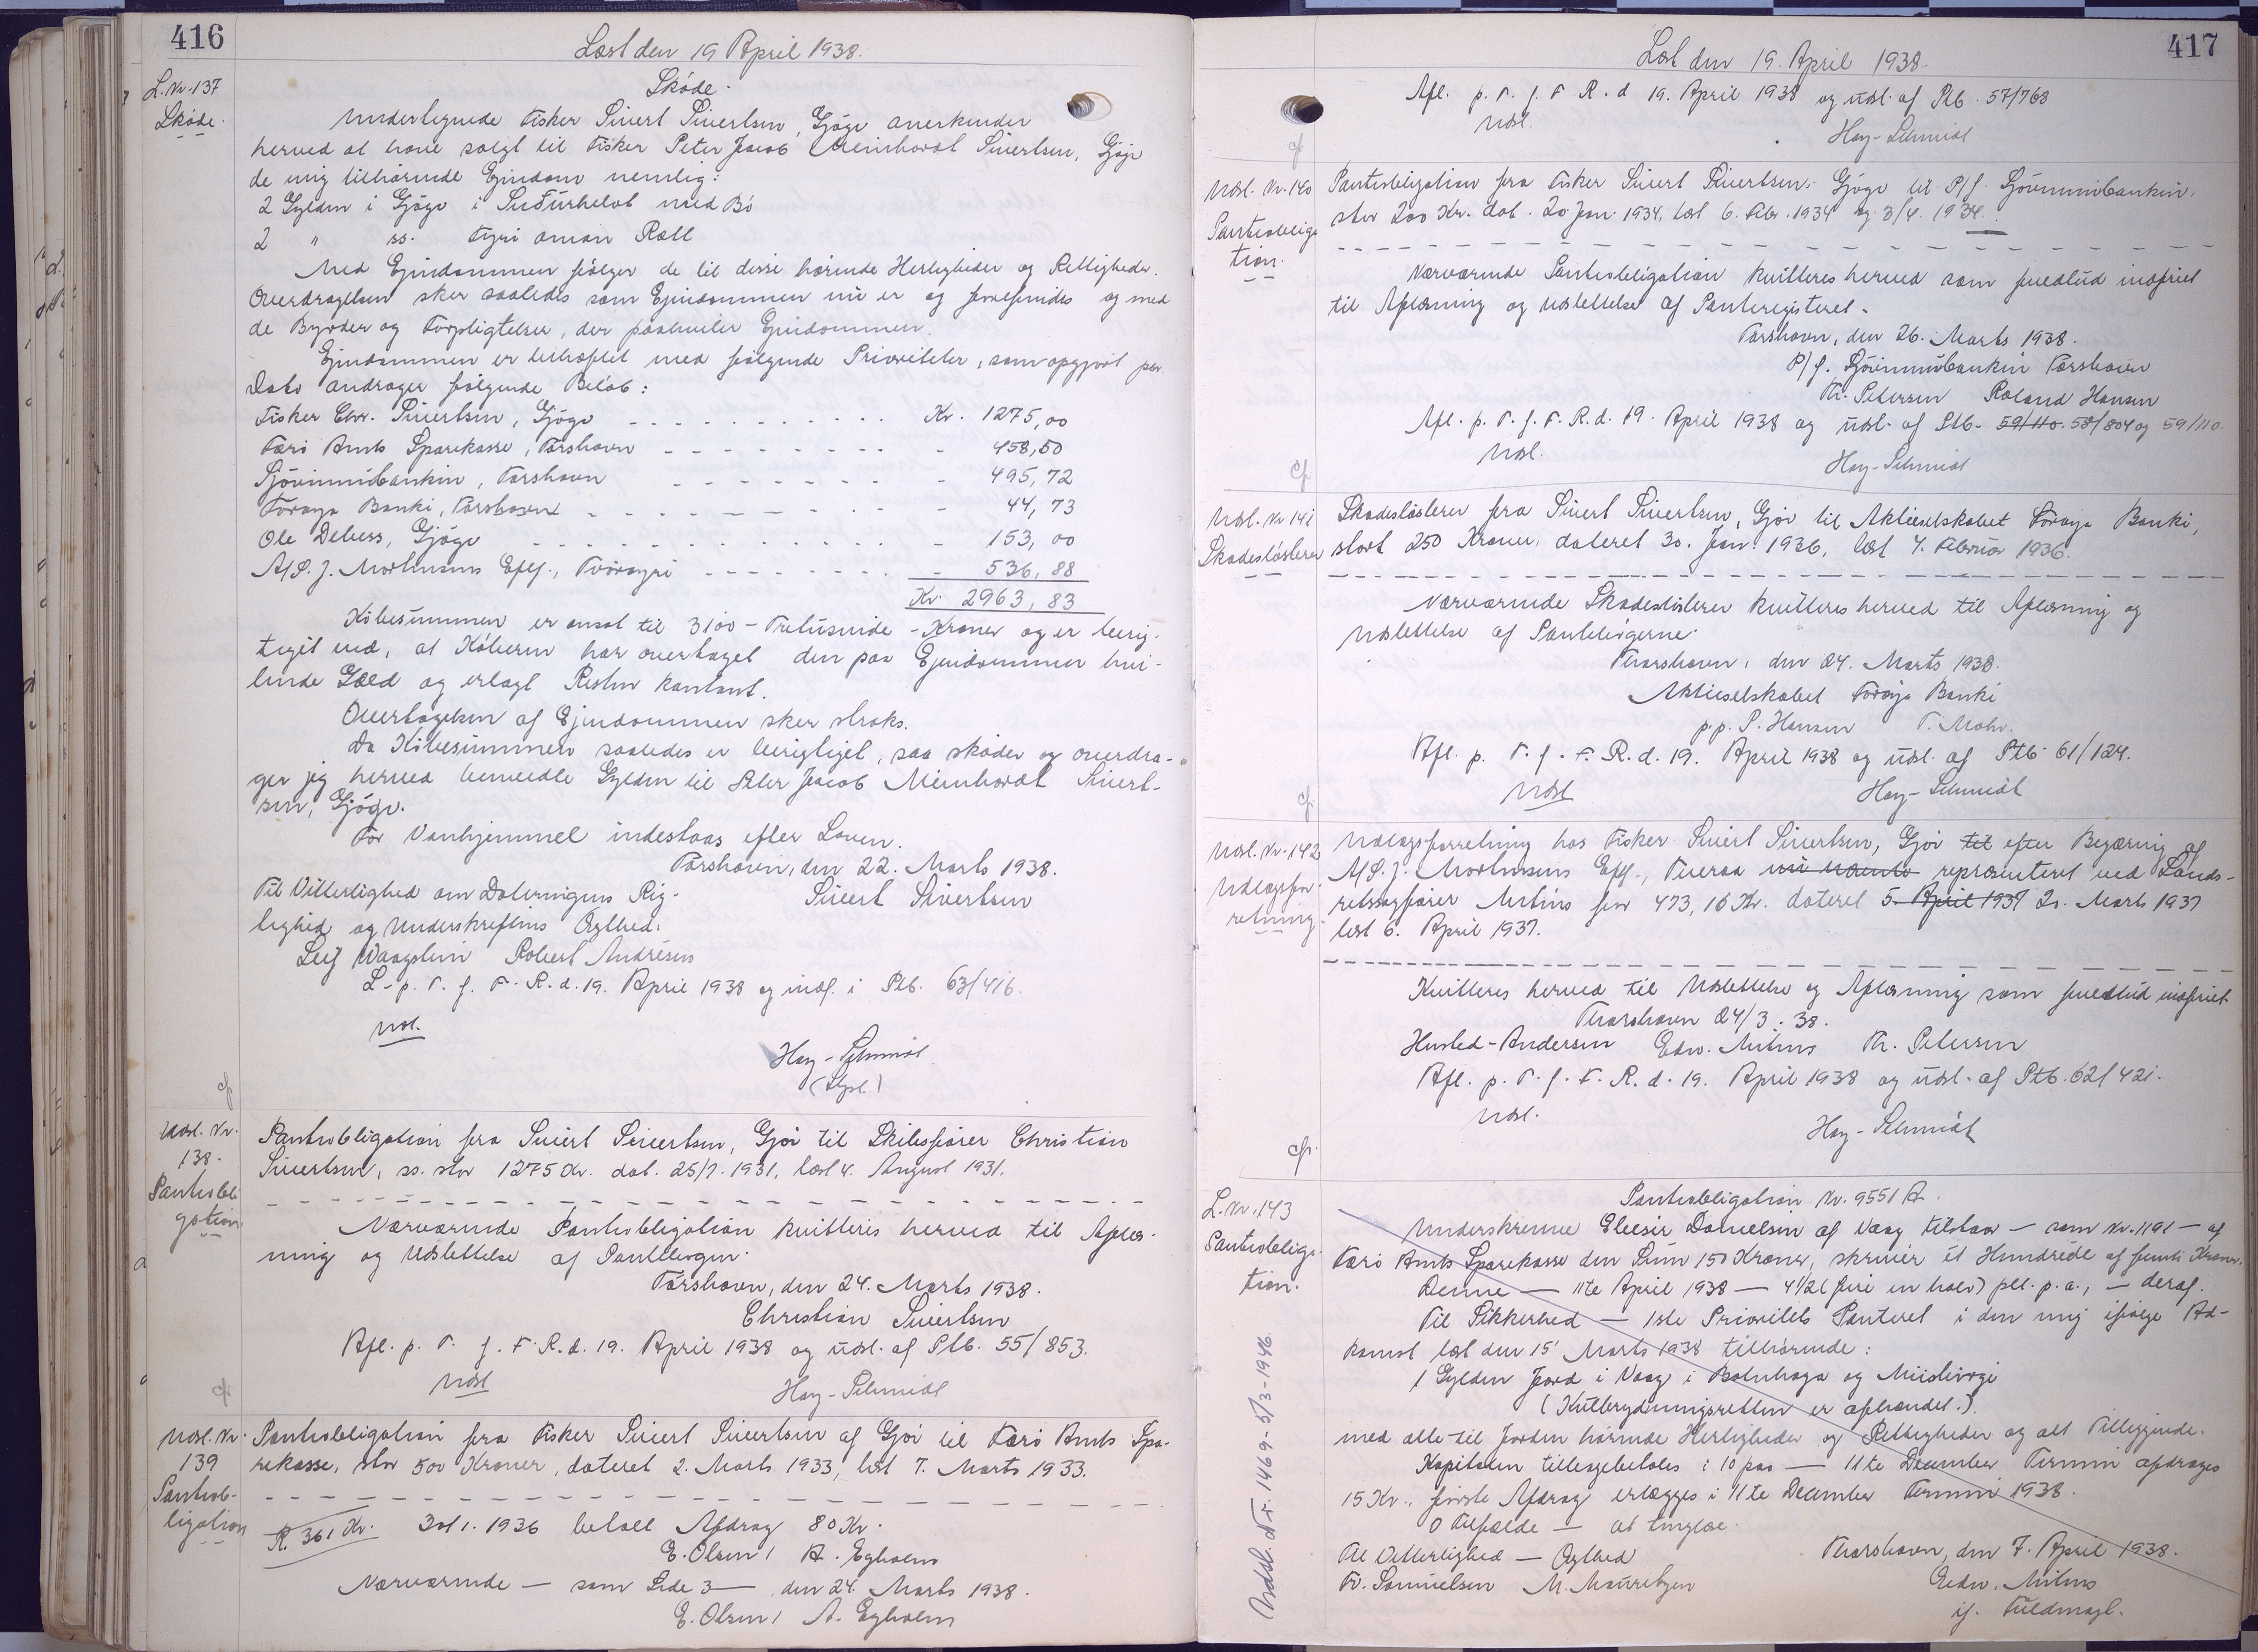 416
Læst den 19 April 1938.
L. Nr. 137
Skøde.
Skøde.
Undertegnede Fisker Sivert Sivertsen, Gjógv anerkender
herved at have solgt til Fisker Peter Jacob Meinhardt Sivertsen, Gjógv
de mig tilhørende Ejendom nemlig:
2 Gylden i Gjógv i Suðurhelvt með Bø
2 " ss. fyri oman Rætt
Med Ejendommen følger de til disse hørende Herligheder og Rettigheder.
Overdragelsen sker saaledes som Ejendommen nu er og forefindes og med
de Byrder og Forpligtelser, der paahviler Ejendommen.
Ejendommen er behæftet med følgende Prioriteter, som opgjort per
Dato andrager følgende Beløb:
Fisker Chr. Sivertsen, Gjógv - - - - Kr. 1275,00
Færø Amts Sparekasse, Tórshavn - - - - 458,50
Sjóvinnubankin, Tórshavn - - - - 495,72
Føroya Banki, Tórshavn - - - - 44,73
Ole Debess, Gjógv - - - - 153,00
A/S. J. Mortensens Eftf., Tvöroyri - - - - 536,88
Kr. 2963,83
Købesummen er ansat til 3100 - Tretusinde - Kroner og er berig-
tiget ved, at Køberen har overtaget den paa Ejendommen hvi-
lende Gæld og erlagt Resten kontant.
Overtagelsen af Ejendommen sker straks.
Da Købesummen saaledes er berigtiget, saa skøder og overdra-
ger jeg herved bemeldte Gylden til Peter Jacob Meinhardt Sivert-
sen, Gjógv.
For Vanhjemmel indestaas efter Loven.
Tórshavn, den 22. Marts 1938.
Til Vitterlighed om Dateringens Rig- Sivert Sivertsen
tighed og Underskriftens Ægthed:
Leif Waagstein Robert Andreasen
L. p. T. f. F. R. d. 19. April 1938 og indf. i Ptb. 63/416.
Udsl.
Hay-Schmidt
(Kst.)
cf.
Udsl. Nr.
138.
Pantobli
gation
Pantobligation fra Sivert Sivertsen, Gjov til Skibsfører Christian
Sivertsen, ss. stor 1275 Kr. dat. 25/7. 1931, læst 4. August 1931.
Nærværende Pantobligation kvitteres herved til Aflæs-
ning og Udslettelse af Pantebogen.
Tórshavn, den 24. Marts 1938.
Christian Sivertsen
Afl. p. T. f. F. R. d. 19. April 1938 og udsl. af Ptb. 55/853.
Udsl
Hay-Schmidt
cf.
Udsl. Nr.
139
Pantob-
ligation
Pantobligation fra Fisker Sivert Sivertsen af Gjov til Færø Amts Spa-
rekasse, stor 500 Kroner, dateret 2. Marts 1933, læst 7. Marts 1933.
R. 361 Kr. 30/1. 1936 betalt Afdrag 80 Kr.
E. Olsen / A. Egholm
Nærværende — som Side 3 — den 24. Marts 1938.
E. Olsen / A. Egholm
417
Læst den 19. April 1938.
Afl. p. T. f. F. R. d 19. April 1938 og udsl. af Ptb. 57/768
Udsl.
Hay-Schmidt
cf
Udsl. Nr. 140
Pantoobliga
tion.
Pantobligation fra Fisker Sivert Sivertsen, Gjógv til P/f. Sjóvinnubankin,
stor 200 Kr. dat. 20 Jan. 1934, læst 6. Febr. 1934 og 3/4. 1934.
Nærværende Pantobligation kvitteres herved som fuldtud indfriet
til Aflæsning og Udslettelse af Panteregisteret.
Tórshavn, den 26. Marts 1938.
P/f. Sjóvinnubankin Tórshavn
Th. Petersen Roland Hansen
Afl. p. T. f. F. R. d. 19. April 1938 og udsl. af Ptb. 59/110. 58/804 og 59/110.
Udsl.
Hay-Schmidt
cf.
Udsl. Nr 141
Skadesløsbrev
Skadesløsbrev fra Sivert Sivertsen, Gjov til Aktieselskabet Føroya Banki,
stort 250 Kroner, dateret 30. Jan. 1936, læst 4. Februar 1936.
Nærværende Skadesløsbrev kvitteres herved til Aflæsning og
Udslettelse af Pantebøgerne.
Thorshavn, den 24. Marts 1938.
Aktieselskabet Føroya Banki
p.p. P. Hansen T. Mohr.
Afl. p. T. f. F. R. d. 19. April 1938 og udsl. af Ptb 61/124.
Udsl
Hay-Schmidt
cf.
Udsl. Nr. 142
Udlægsfor-
retning.
Udlægsforretning hos Fisker Sivert Sivertsen, Gjov til efter Begæring af
A/S. J. Mortensens Eftf., Tveraa repræsenteret ved Lands-
retssagfører Mitens for 473,16 Kr. dateret 5. April 1937 20. Marts 1937
læst 6. April 1937.
Kvitteres herved til Udslettelse og Aflæsning som fuldtud indfriet
Thorshavn 24/3. 38.
Husted-Andersen Edw. Mitens Th. Petersen
Afl. p. T. f. F. R. d. 19. April 1938 og udsl. af Ptb. 62/421.
Udsl.
Hay-Schmidt
cf.
L. Nr. 143
Pantobliga-
tion.
Pantobligation Nr. 9551 A.
Underskrevne Elieser Danielsen af Vaag tilstaar — som Nr. 1191 — af
Færø Amts Sparekasse den Sum 150 Kroner, skriver et Hundrede af femti Kroner.
Denne — 11te April 1938 — 4 1/2 (fire en halv) pct. p.a., — deraf.
Til Sikkerhed — 1ste Prioritets Panteret i den mig ifølge Ad-
komst læst den 15' Marts 1938 tilhørende:
1 Gylden Jord i Vaag i Bolnhaga og
(Kulbrydningsretten er afhændet.)
med alle til Jorden hørende Herligheder og Rettigheder og alt Tilliggende.
Kapitalen tilbagebetales i 10 paa — 11te December Termin afdrages
15 Kr., første Afdrag erlægges i 11te December Termin 1938.
O Tilfælde — at tinglæse.
Til Vitterlighed — Ægthed Thorshavn, den 7. April 1938.
Fr. Samuelsen M. Mouritzen Edw. Mitens
if. Fuldmagt.
Udsl. Nr. 1469 - 5/3 - 1946